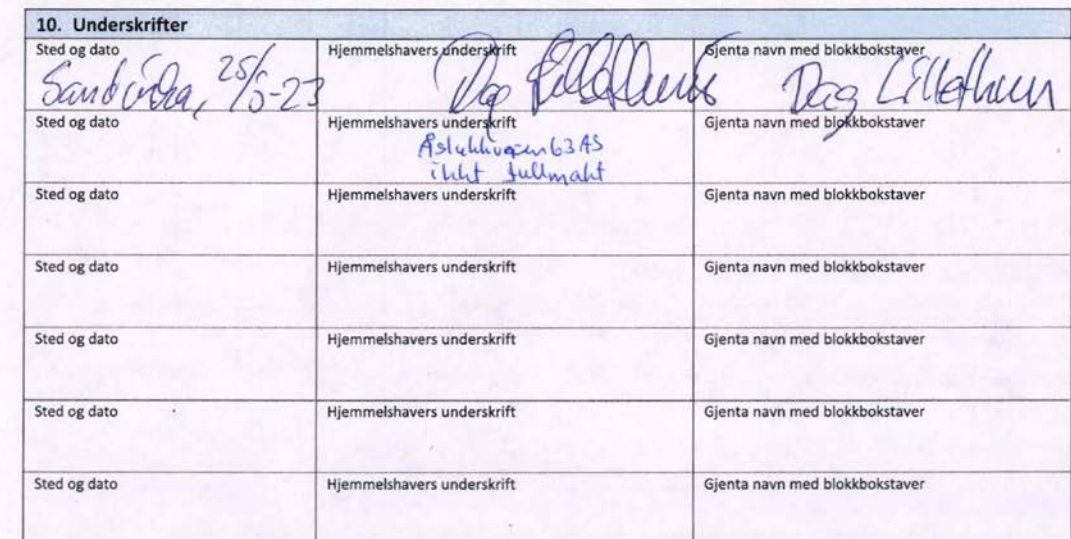 10. Underskrifter
Sted og dato Hjemmelshavers underskrift Gjenta navn med blokkbokstaver
Sandvika, 25/5-23 Dag Lillethun Dag Lillethun
Sted og dato Hjemmelshavers underskrift Gjenta navn med blokkbokstaver
63 AS
ikke fullmakt
Sted og dato Hjemmelshavers underskrift Gjenta navn med blokkbokstaver
Sted og dato Hjemmelshavers underskrift Gjenta navn med blokkbokstaver
Sted og dato Hjemmelshavers underskrift Gjenta navn med blokkbokstaver
Sted og dato Hjemmelshavers underskrift Gjenta navn med blokkbokstaver
Sted og dato Hjemmelshavers underskrift Gjenta navn med blokkbokstaver